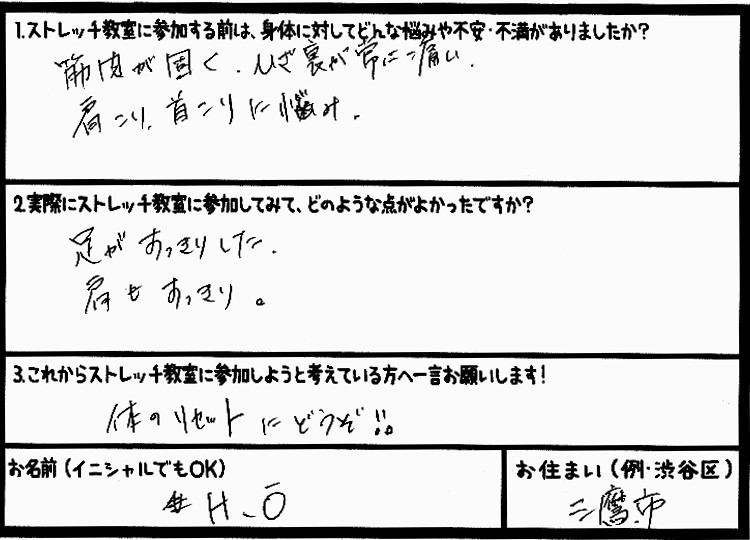 1.ストレッチ教室に参加する前は、身体に対してどんな悩みや不安・不満がありましたか?
筋肉が固く、ひざ裏が常に痛い.
肩こり、首こりに悩み。
2.実際にストレッチ教室に参加してみて、どのような点がよかったですか?
足がすっきりした.
肩もすっきり。
3.これからストレッチ教室に参加しようと考えている方へ一言お願いします!
体のリセットにどうぞ!!
お名前(イニシャルでもOK)
H.Ō
お住まい(例・渋谷区)
三鷹市